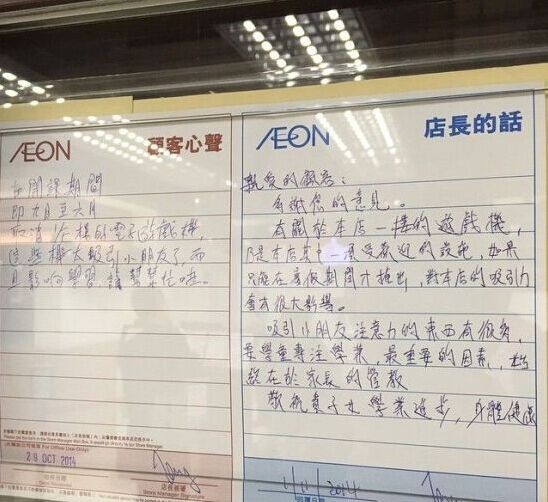 AEON 顧客心聲
在開課期間
即九月至六月
取消1/F樓的電子遊戲機,
這些機太吸引小朋友了而
且影响學習請幫幫忙啦。
For Office Use Only
29 OCT 2014
店長簽署
Store Manager Signature
AEON 店長的話
親愛的顧客:
多謝您的意見。
有關於本店一樓的遊戲機,
乃是本店其中一項受歡迎的設施,如果
只能在暑假期間才推出,對本店的吸引力
會有很大影響。
吸引小朋友注意力的東西有很多,
要學童專注學業,最重要的因素,
在於家長的管教
敬祝 貴子女學業進步,身體健康
2014